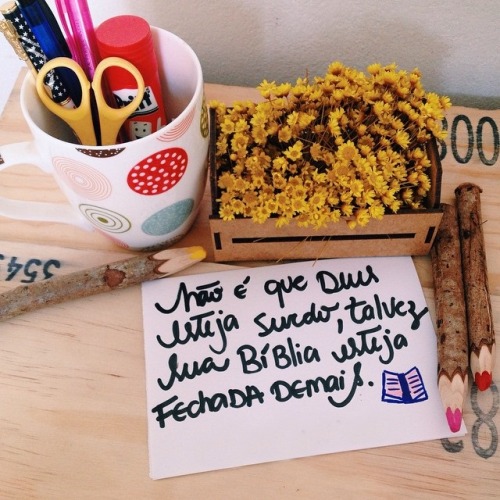 Não é que Deus
esteja surdo, talvez
sua Bíblia esteja
FECHADA DEMAIS.
Prit